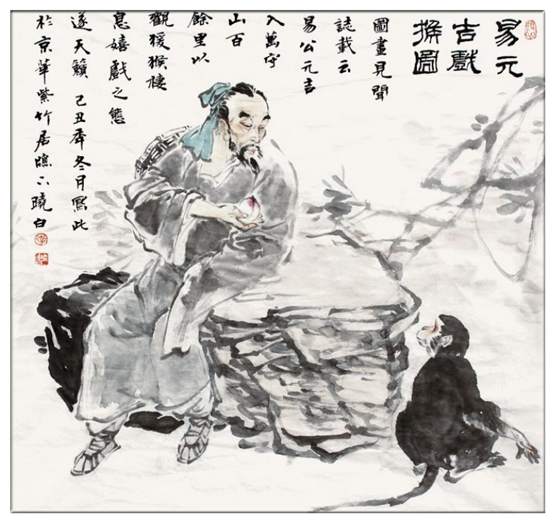 易元
吉戲
猴圖
圖畫見聞
誌載云
易公元吉
入萬守
山百
餘里以
觀猨猴棲
息嬉戲之態
遂天籟 己丑年冬月寫此
於京華紫竹居 曉白